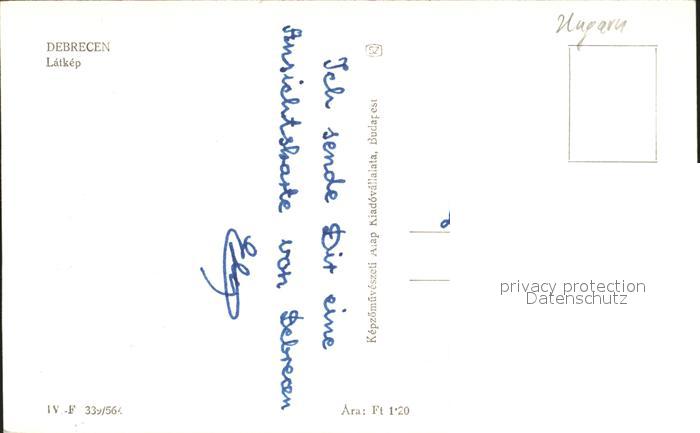 DEBRECEN
Látkép
Ungarn
Ich sende Dir eine
Ansichtskarte von Debrecen
Képzőművészeti Alap Kiadóvállalata, Budapest
privacy protection
Datenschutz
IV -F 339/564
Ára: Ft 1·20